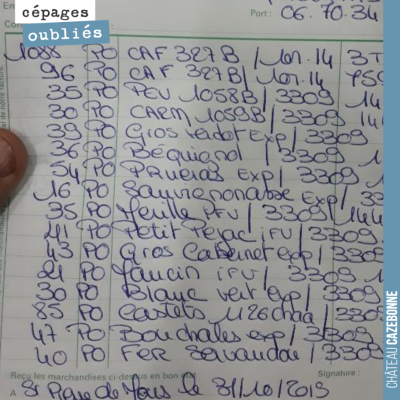 cépages
oubliés
Port : 06.70.34
1088 PO CAF 327B / 1on.14 3T
96 PO CAF 327B / 1on.14 759
35 PO PEV 1058B / 3309 14
30 PO CARM 1059B / 3309
39 PO Gros verdot Exp / 3309
36 PO Béquignol / 3309 1
54 PO Pruéras Exp / 3309
16 PO Sauvignonasse Exp / 33
35 PO PFV / 3309 144
41 PO Petit Péjac iFV / 3309
43 PO Gros Cabernet exp / 3309
21 PO iFV / 3309 1
30 PO Blanc vert exp / 3309
85 PO Castets / 3309
47 PO Bouchales exp / 3309
40 PO FER Servandou / 3309
Reçu les marchandises ci-dessus en bon état Signature :
A St le 31/10/2019
CHÂTEAU CAZEBONNE